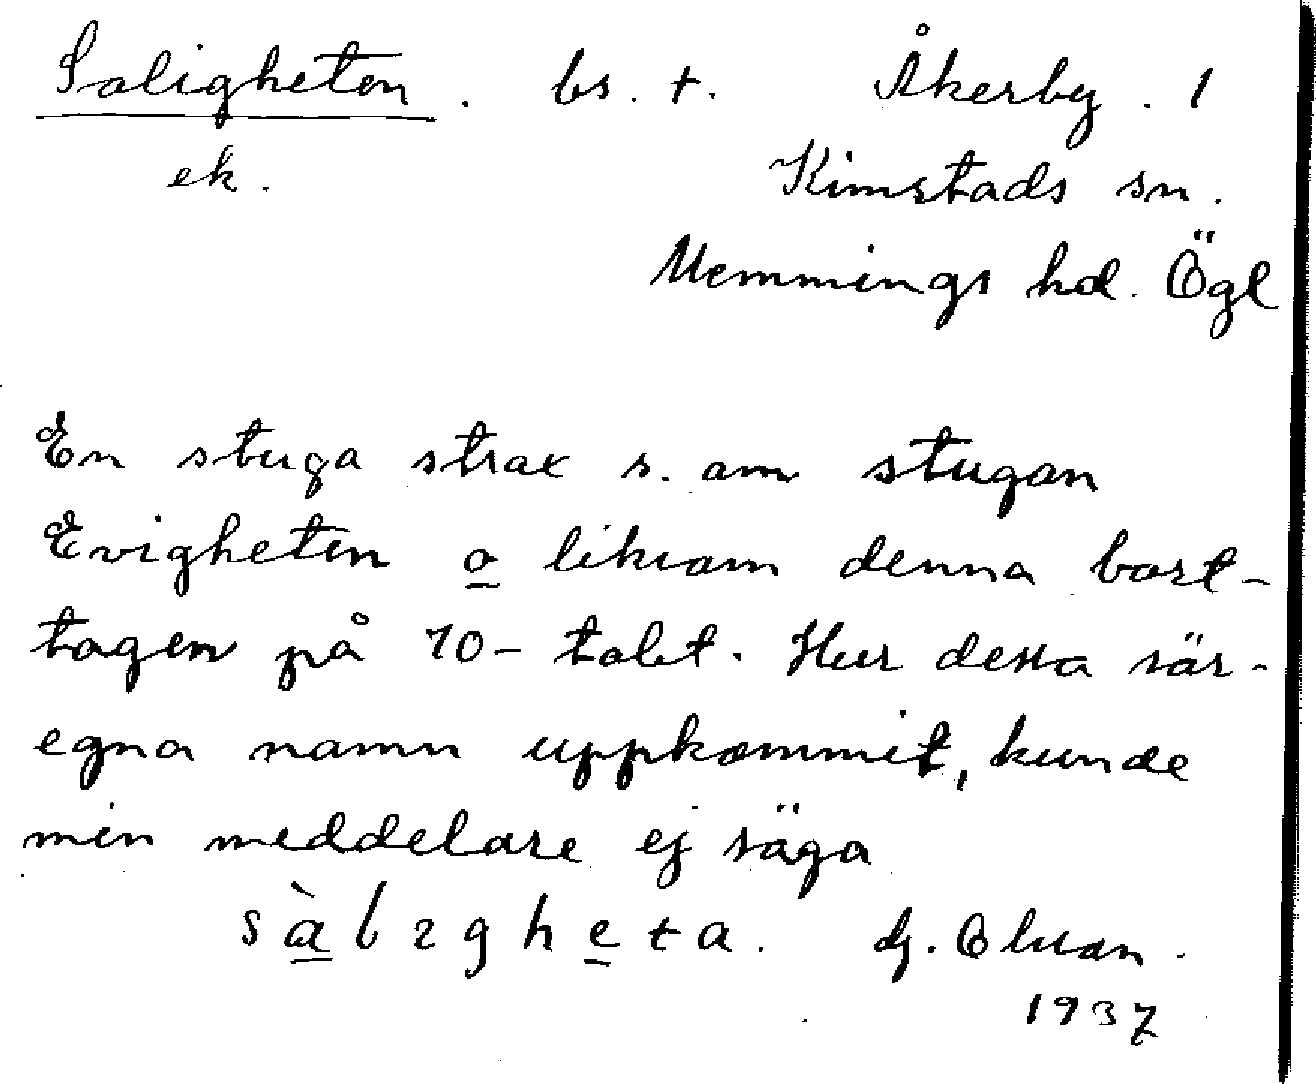 Saligheten. bs. t. Åkerby. 1
ek. Kimstads sn.
Memmings hd. Ögl
En stuga strax s. om stugan
Evigheten o liksom denna bort-
tagen på 70-talet. Hur dessa sär-
egna namn uppkommit, kunde
min meddelare ej säga